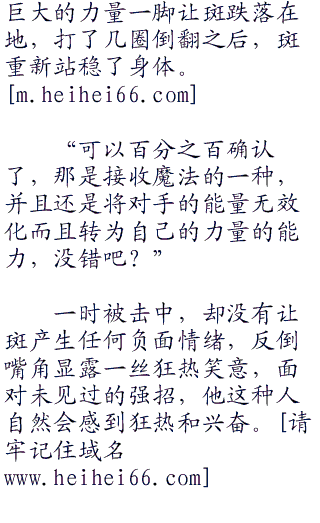 巨大的力量一脚让斑跌落在
地，打了几圈倒翻之后，斑
重新站稳了身体。
[m.heihei66.com]
“可以百分之百确认
了，那是接收魔法的一种，
并且还是将对手的能量无效
化而且转为自己的力量的能
力，没错吧？”
一时被击中，却没有让
斑产生任何负面情绪，反倒
嘴角显露一丝狂热笑意，面
对未见过的强招，他这种人
自然会感到狂热和兴奋。[请
牢记住域名
www.heihei66.com]